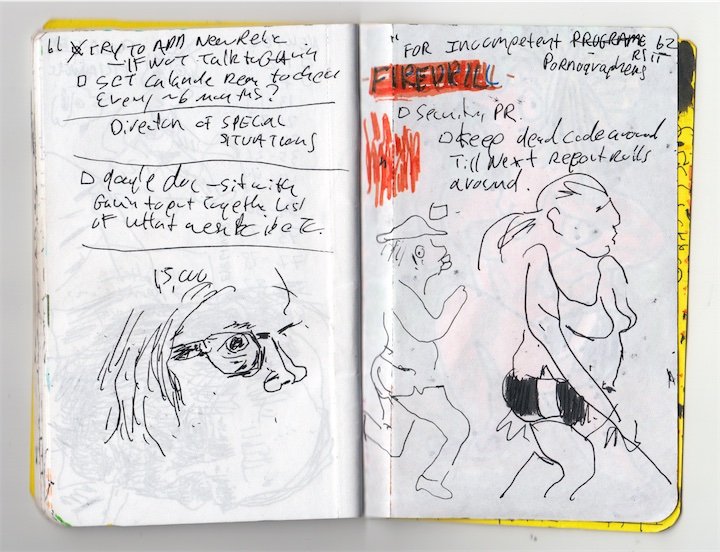 61
TRY TO ADD NewRelic
— IF NOT TALK to Gavin
SET Calendar Rem to check
Every ~6 months?
Director of SPECIAL
SITUATIONS
google doc – sit with
Gavin to put together list
of what
15,000
62
" FOR Incompetent PROGRAMERS
Pornographers
FIREDRILL
Security PR.
Keep dead code around
Till Next Report Rolls
around.